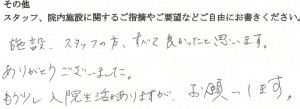 その他
スタッフ、院内施設に関するご指摘やご要望などご自由にお書きください。
施設、スタッフの方、すべて良かったと思います。
ありがとうございました。
もう少し入院生活がありますが、お願いします。